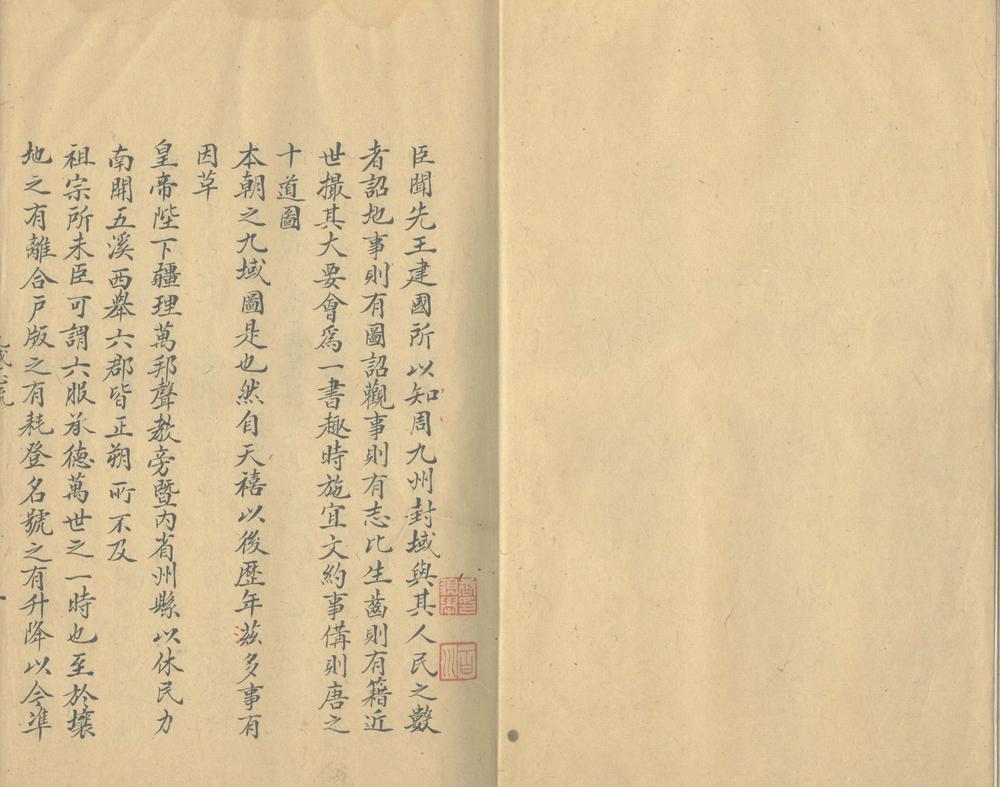 臣聞先王建國所以知周九州封域與其人民之數
者詔地事則有圖詔觀事則有志比生齒則有籍近
世撮其大要會爲一書趣時施宜文約事僃則唐之
十道圖
本朝之九域圖是也然自天禧以後歷年滋多事有
因革
皇帝陛下疆理萬邦聲教旁暨内省州縣以休民力
南開五溪西舉六郡皆正朔所不及
祖宗所未臣可謂六服承德萬世之一時也至於壤
地之有離合戶版之有耗登名號之有升降以今準